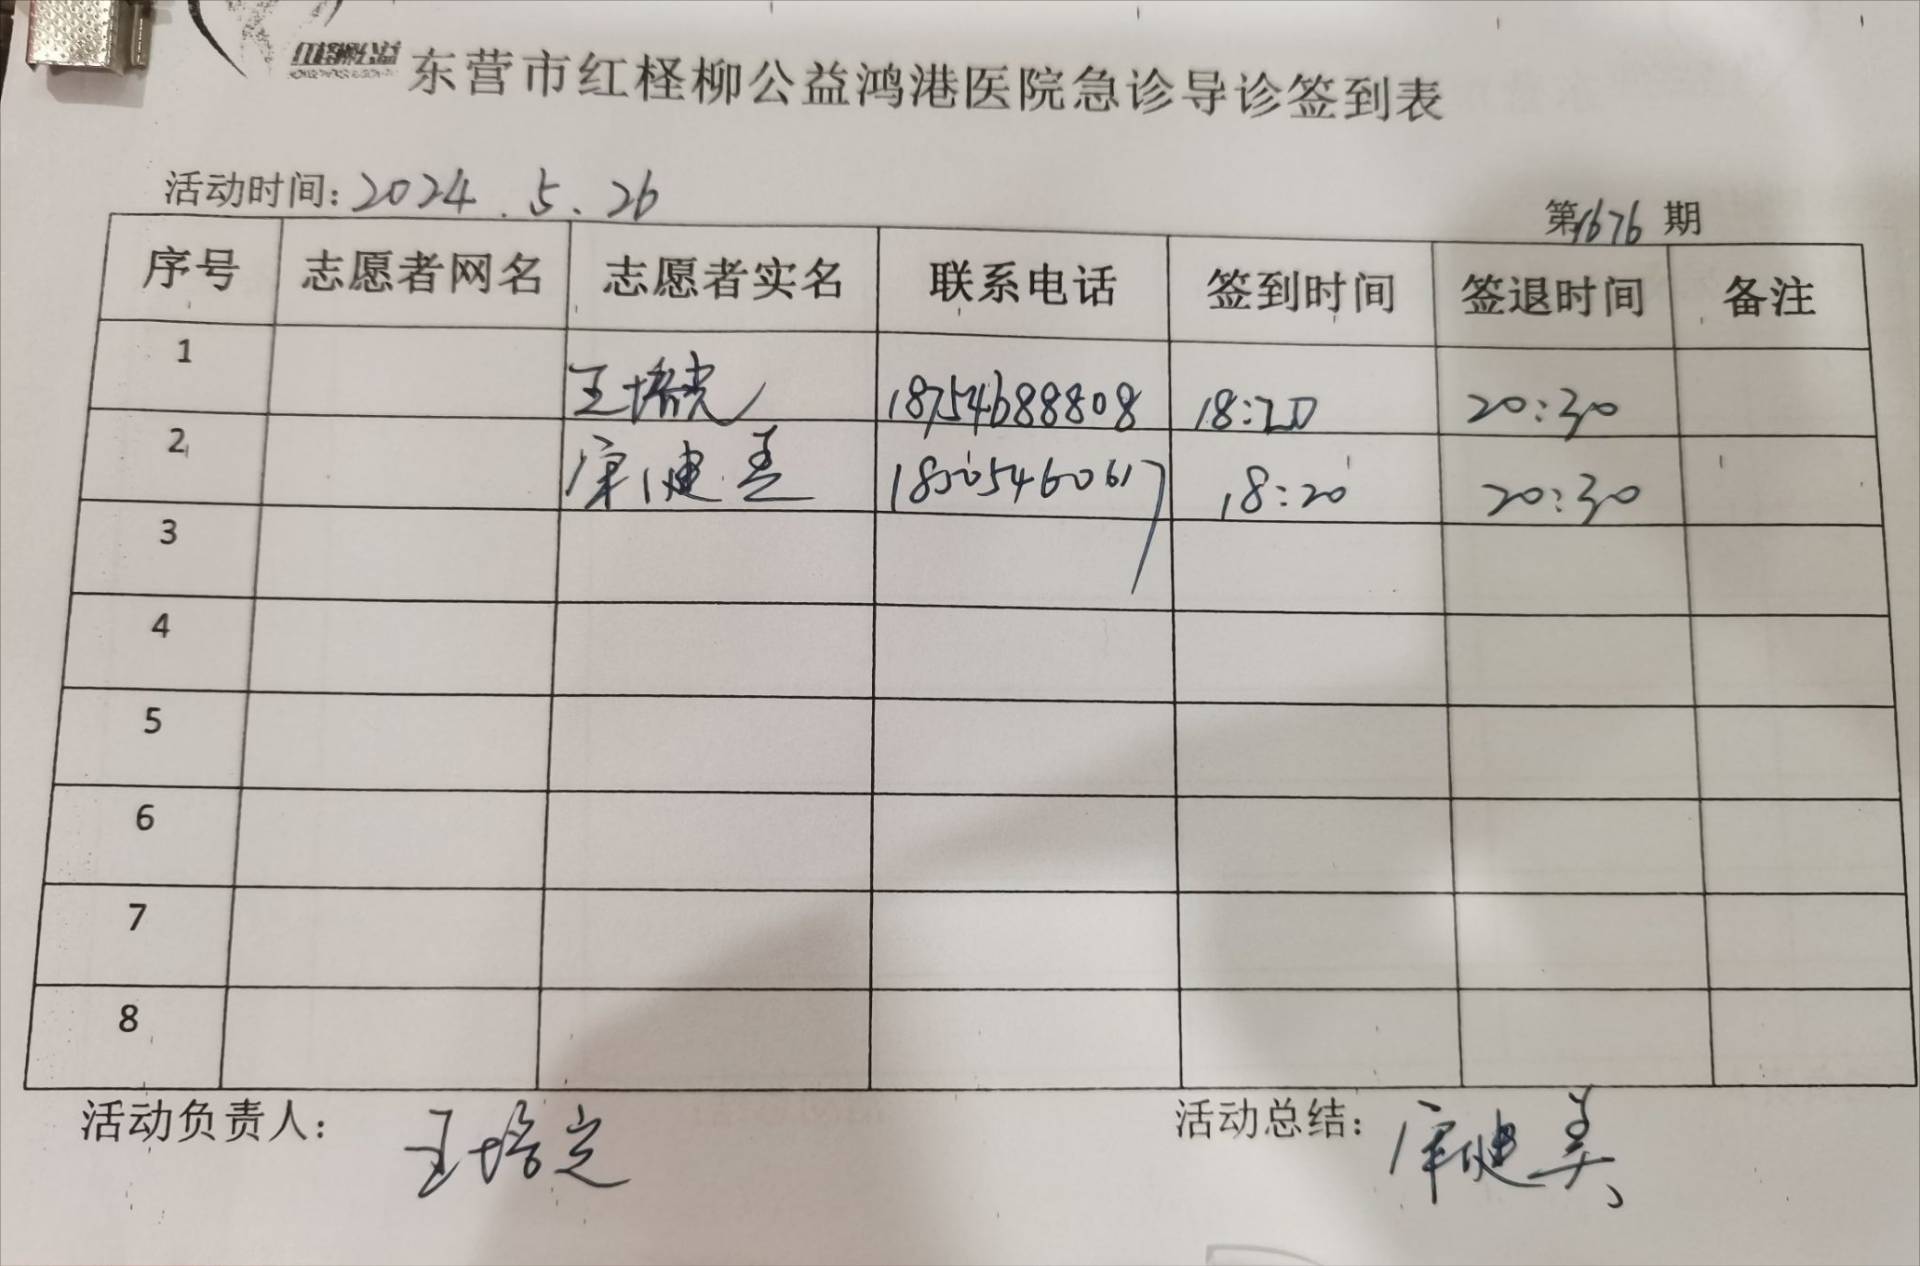 东营市红柽柳公益鸿港医院急诊导诊签到表
活动时间：2024.5.26
第1676期
序号 志愿者网名 志愿者实名 联系电话 签到时间 签退时间 备注
1 王培 18754688808 18:20 20:30
2 健美 18:20 20:30
3
4
5
6
7
8
活动负责人：王培
活动总结：健美